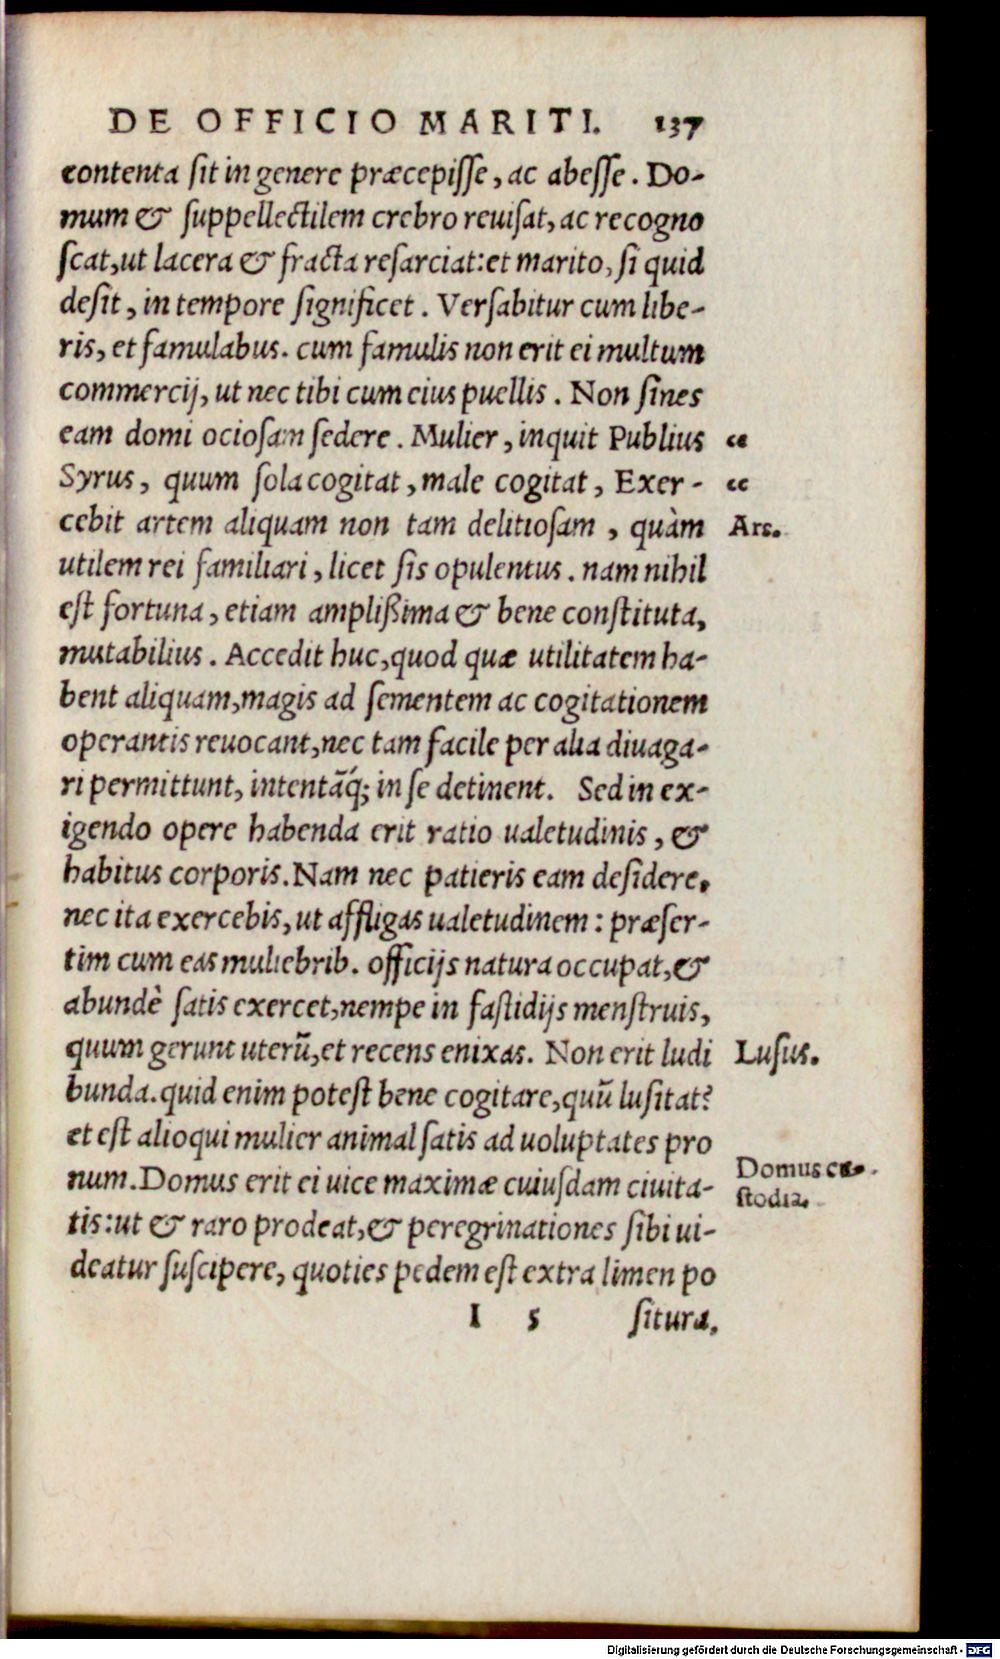 DE OFFICIO MARITI. 137
contenta sit in genere præcepisse, ac abesse. Do-
mum & suppellectilem crebro reuisat, ac recogno
scat, ut lacera & fracta resarciat: et marito, si quid
desit, in tempore significet. Versabitur cum libe-
ris, et famulabus. cum famulis non erit ei multum
commercij, ut nec tibi cum eius puellis. Non sines
eam domi ociosam sedere. Mulier, inquit Publius “
Syrus, quum sola cogitat, male cogitat, Exer- “
cebit artem aliquam non tam delitiosam, quàm Ars.
utilem rei familiari, licet sis opulentus. nam nihil
est fortuna, etiam amplißima & bene constituta,
mutabilius. Accedit huc, quod quæ utilitatem ha-
bent aliquam, magis ad sementem ac cogitationem
operantis reuocant, nec tam facile per alia diuaga-
ri permittunt, intentãq́; in se detinent. Sed in ex-
igendo opere habenda erit ratio ualetudinis, &
habitus corporis. Nam nec patieris eam desidere,
nec ita exercebis, ut affligas ualetudinem: præser-
tim cum eas muliebrib. officijs natura occupat, &
abundè satis exercet, nempe in fastidijs menstruis,
quum gerunt uterũ, et recens enixas. Non erit ludi Lusus.
bunda. quid enim potest bene cogitare, quũ lusitat?
et est alioqui mulier animal satis ad uoluptates pro
num. Domus erit ei uice maximæ cuiusdam ciuita- Domus cu-
stodia.
tis: ut & raro prodeat, & peregrinationes sibi ui-
deatur suscipere, quoties pedem est extra limen po
I 5 situra.
Digitalisierung gefördert durch die Deutsche Forschungsgemeinschaft - DFG